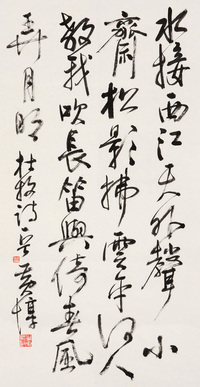 水接西江天外聲小
齋松影拂雲平何人
教我吹長笛與倚春風
弄月明 杜牧詩一首黄惇